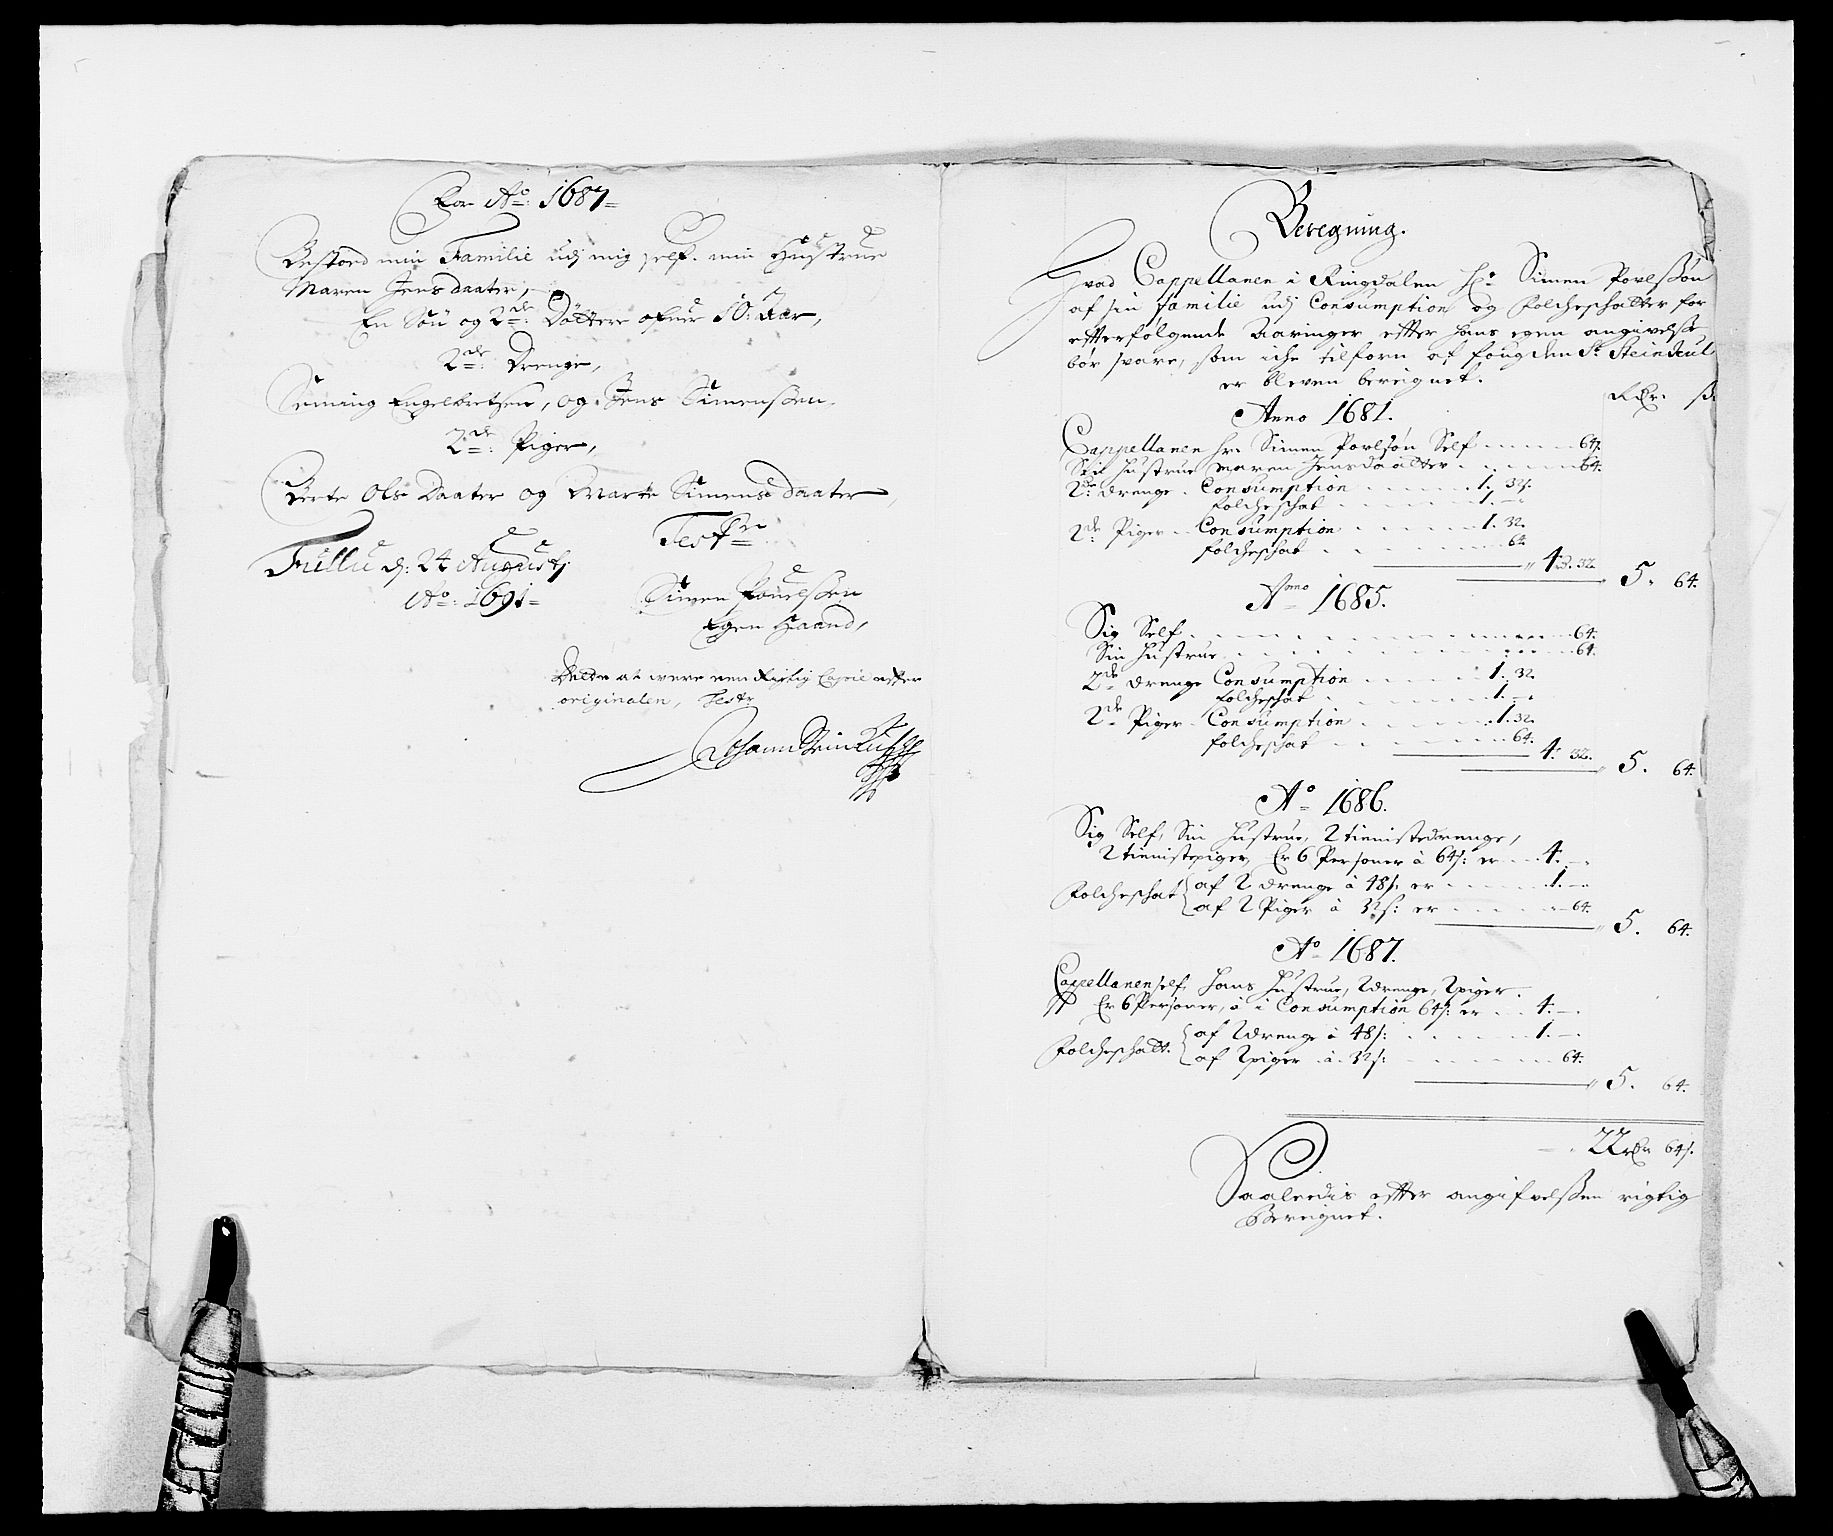 For Ao: 1687
Bestoed min Familie udj mig self. min Hustrue
Maren Jensdaater,
En Søn og 2de: Døttere ofuer 10: Aar,
2de: Drenge,
Engelbretsen, og Jens Simenssen.
2de: Piger,
Berte Ols Daater og Marte Simensdaater,
Fullu d: 24 Augustj
Ao: 1691
Test
Simen Pouelssen
Egen Haand,
Dette at were een Rigtig Copie efter
originalen, Test
Beregning.
Hvad Cappellanen i Ringdalen Hr. Simen Povlssøn
af sin familie udj Consumption og Folcheschatter for
effterfølgende Aaringer effter hans egen angivelsse
bør svare, som iche tilforn af fougden Sr. Steinkul
er bleven bereignet.
Rdr. ß.
Anno 1681.
Cappellanen hr. Simen Povlsøn Self 64.
Sin Hustrue Maren Jensdaatter 64.
2de drenge Consumption 1. 32.
folcheschat 1. -
2de Piger Consumption 1. 32.
folcheschat 64.
4. 32. 5. 64.
Anno 1685.
Sig Self 64.
Sin Hustrue 64.
2de drenge Consumption 1. 32.
folcheschat 1. -
2de Piger Consumption 1. 32.
folcheschat 64.
4. 32. 5. 64.
Ao 1686.
Sig Self, Sin Hustrue, 2 tienistedrenge,
2 tienistepiger, Er 6 Personer à 64 ß: er 4. -
Folcheschat af 2 drenge à 48 ß: er 1. -
af 2 Piger à 32 ß: er 64.
5. 64.
Ao 1687.
Cappellanen self, Hans Hustrue, 2 drenge, 2 piger.
Er 6 Personer, à i Consumption 64 ß: er 4. -
Folcheschatt. af 2 drenge à 48 ß: 1. -
af 2 piger à 32 ß: 64.
5. 64.
22 rdr 64 ß.
Saaleedis effter angifvelssen rigtig
Bereignet.